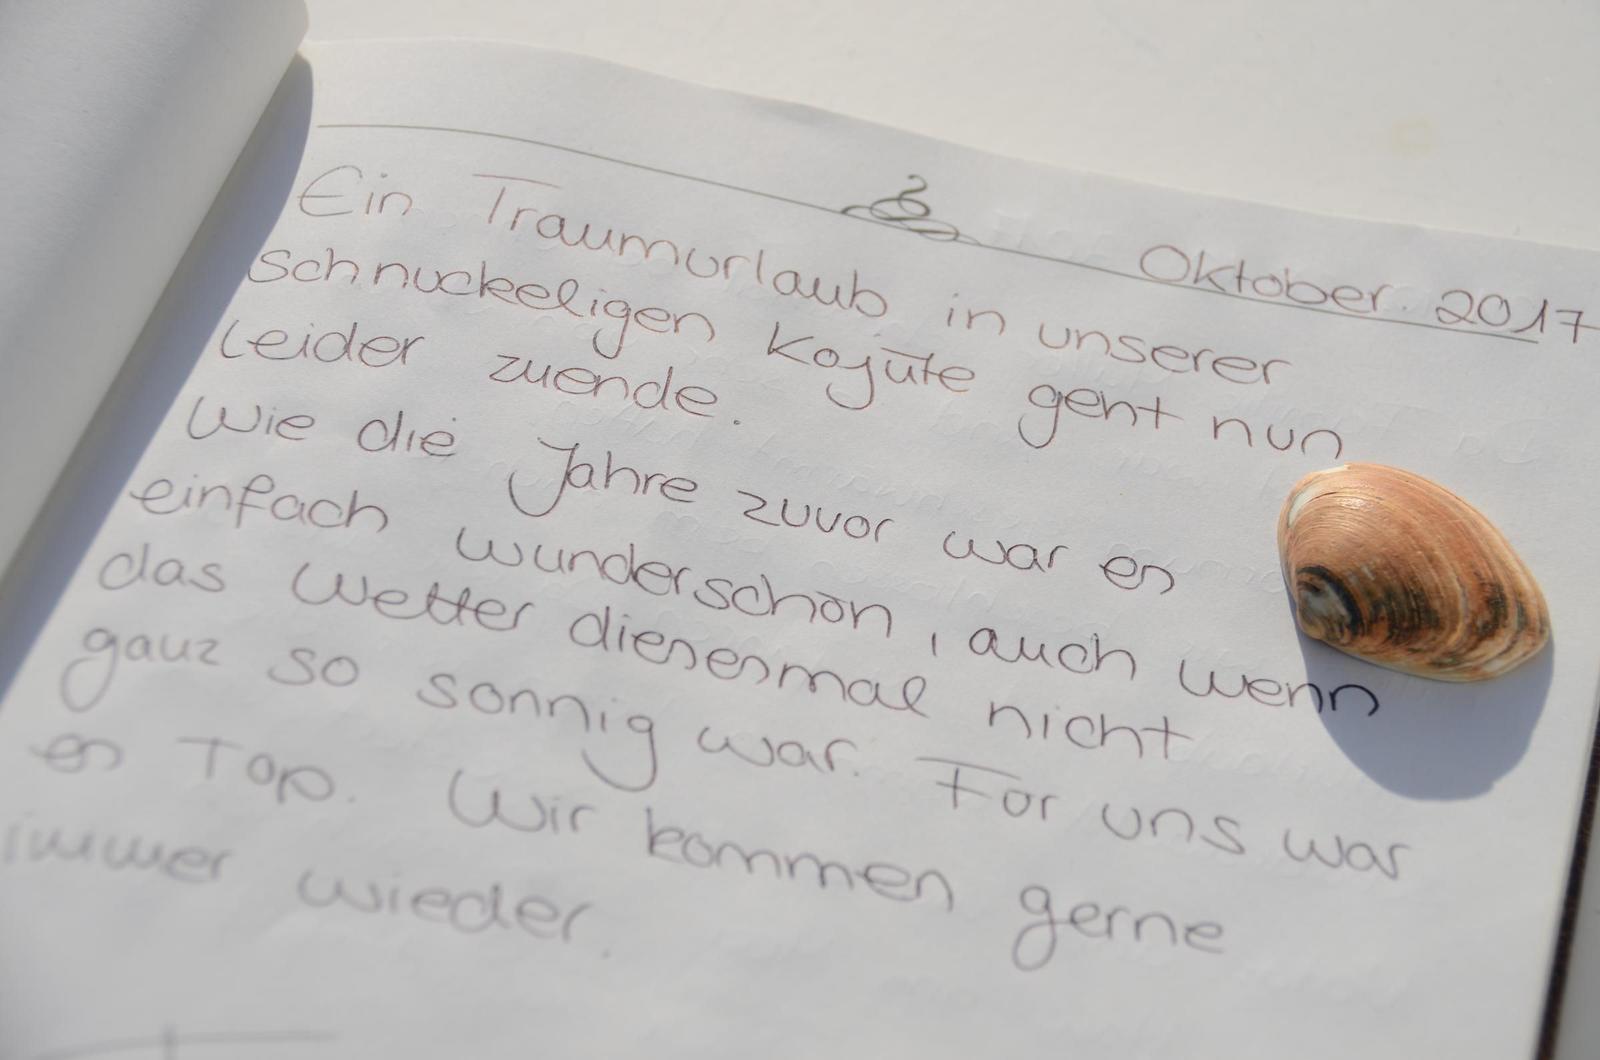 Oktober. 2017
Ein Traumurlaub in unserer
schnuckeligen Kojüte geht nun
leider zuende.
Wie die Jahre zuvor war es
einfach wunderschön, auch wenn
das Wetter diesesmal nicht
ganz so sonnig war. Für uns war
es Top. Wir kommen gerne
immer wieder.